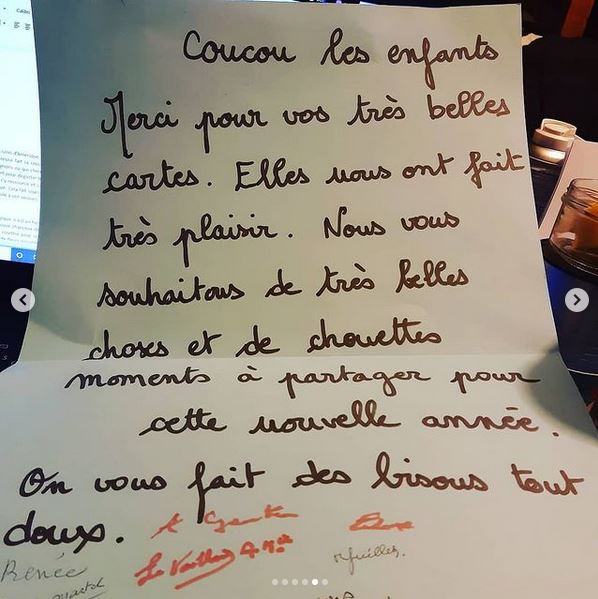 Coucou les enfants
Merci pour vos très belles
cartes. Elles nous ont fait
très plaisir. Nous vous
souhaitons de très belles
choses et de chouettes
moments à partager pour
cette nouvelle année.
On vous fait des bisous tout
doux.
Renée